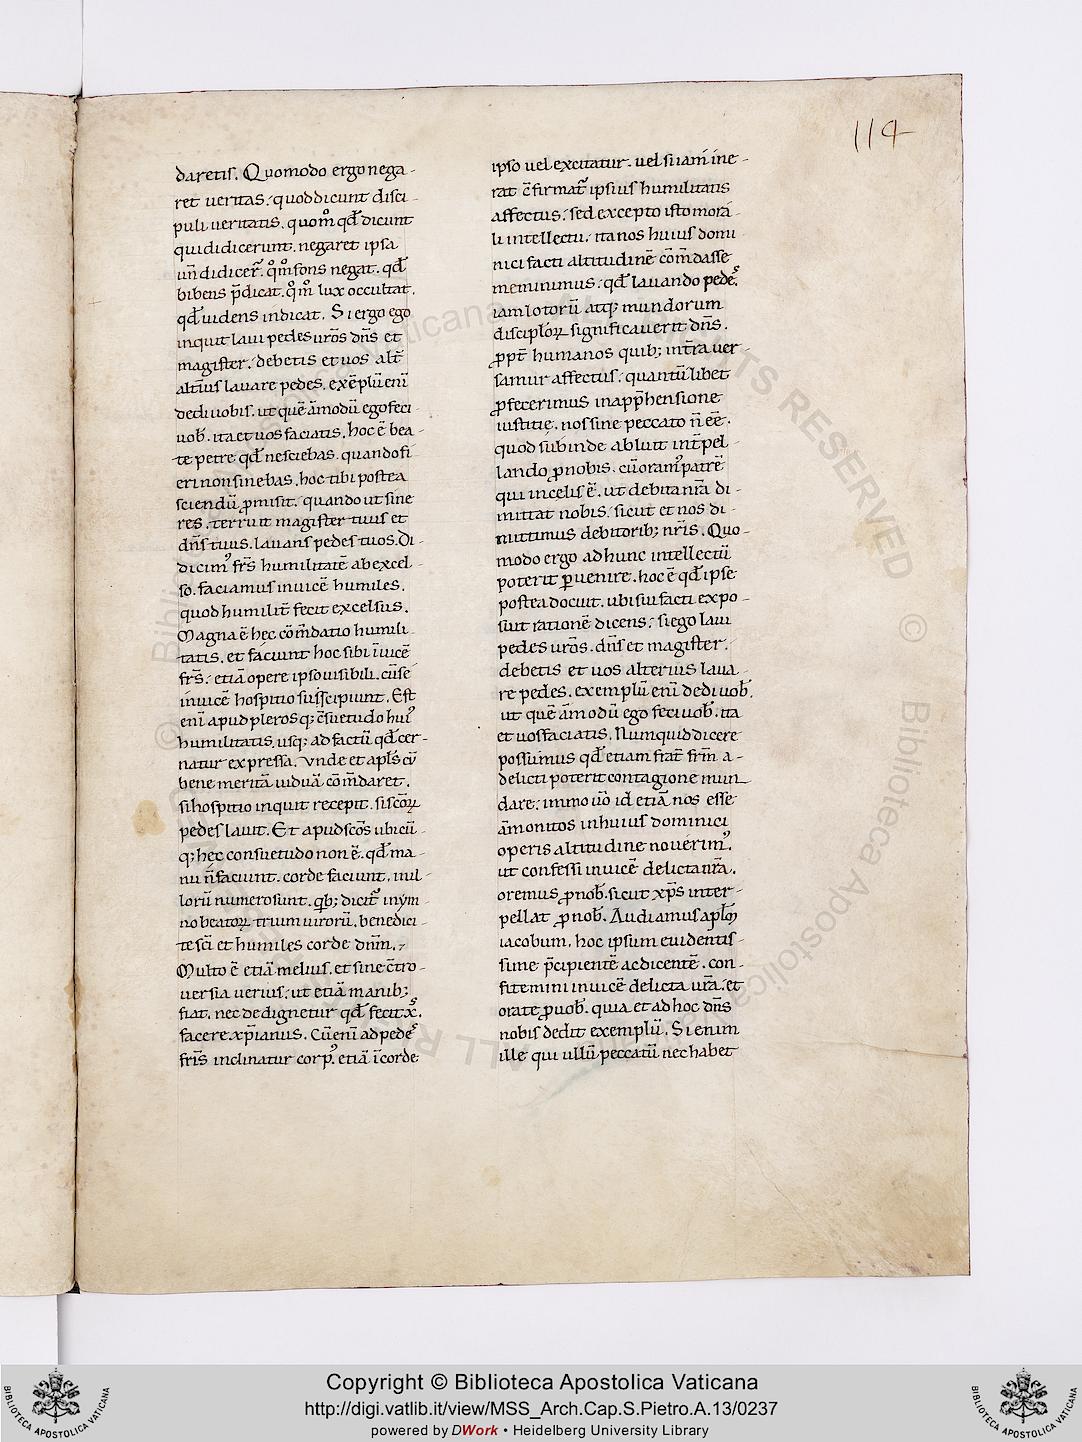 114
daretis. Quomodo ergo nega-
ret ueritas. quod dicunt disci-
puli ueritatis. quom̊ qđ dicunt
qui didicerunt. negaret ipsa
un̄ didicer̄. q̊m̊ fons negat. qđ
bibens p̄dicat. q̊m̊ lux occultat.
qđ uidens indicat. Si ergo ego
inquit laui pedes ur̄os dn̄s et
magister. debetis et uos alt̄
alt̄ius lauare pedes. exēplū enī
dedi uobis. ut quē āmodū ego feci
uob̄. ita et uos faciatis. hoc ē bea-
te petre qđ nesciebas. quando fi
eri non sinebas. hoc tibi postea
sciendū ꝓmisit. quando ut sine
res. terruit magister tuus et
dn̄s tuus. lauans pedes tuos. Di-
dicim᾿ fr̄s humilitatē ab excel-
so. faciamus inuicē humiles.
quod humilit̄ fecit excelsus.
Magna ē hec cōm̄datio humili-
tatis. et faciunt hoc sibi īuicē
fr̄s. etiā opere ipso uisibili. cū se
inuicē hospitio suscipiunt. Est
enī apud plerosq; c̄suetudo hui᾿
humilitatis. usq; ad factū qđ cer-
natur expressa. Vnde et apl̄s cū
bene meritā uiduā cōm̄daret.
si hospitio inquit recepit. si sc̄oꝝ
pedes lauit. Et apud sc̄os ubicū-
q; hec consuetudo non ē. qđ ma-
nu n̄ faciunt. corde faciunt. in il-
lorū numero sunt. qb; dicit᾿ in ym-
no beatoꝝ trium uirorū. benedici-
te sc̄i et humiles corde dn̄m.
Multo ē etiā melius. et sine c̄tro-
uersia uerius. ut etiā manib;
fiat. nec dedignetur qđ fecit x̄ᵖ̄s.
facere xp̄ianus. Cū enī ad pedes
fr̄is inclinatur corp᾿. etiā ī corde
ipso uel excitatur. uel si iam ine-
rat c̄firmat᾿ ipsius humilitatis
affectus. sed excepto isto mora-
li intellectu. ita nos huius domi
nici facti altitudinē cōm̄dasse
meminimus. qđ lauando pedes
iam lotorū atq; mundorum
discipl̄oꝝ significauerit dn̄s.
ꝓpt̄ humanos quib; in tr̄a uer-
samur affectus. quantūlibet
ꝓfecerimus in app̄hensione
iustitie. nos sine peccato n̄ eē.
quod subinde abluit int̄pel-
lando ꝓ nobis. cū oram᾿ patrē
qui in celis ē. ut debita nr̄a di-
mittat nobis. sicut et nos di-
mittimus debitorib; nr̄is. Quo-
modo ergo ad hunc intellectū
poterit ꝑuenire. hoc ē qđ ipse
postea docuit. ubi sui facti expo-
suit rationē dicens. si ego laui
pedes ur̄os. dn̄s et magister.
debetis et uos alterius laua-
re pedes. exemplū enī dedi uob̄.
ut quē āmodū ego feci uob̄. ita
et uos faciatis. Nunquid dicere
possumus qđ etiam frat᾿ frēm a-
delicti poterit contagione mun-
dare. immo ūo id etiā nos esse
āmonitos in huius dominici
operis altitudine nouerim᾿.
ut confessi inuicē delicta nr̄a.
oremus ꝓ nob̄. sicut xp̄s inter-
pellat ꝓ nob̄. Audiamus apl̄m
iacobum. hoc ipsum euidentis-
sime p̄cipientē ac dicentē. con-
fitemini inuicē delicta ur̄a. et
orate ꝓ uob̄. quia et ad hoc dn̄s
nobis dedit exemplū. Si enim
ille qui ullū peccatū nec habet
Copyright © Biblioteca Apostolica Vaticana
http://digi.vatlib.it/view/MSS_Arch.Cap.S.Pietro.A.13/0237
powered by DWork • Heidelberg University Library
BIBLIOTECA APOSTOLICA VATICANA
BIBLIOTECA APOSTOLICA VATICANA
© Biblioteca Apostolica Vaticana ALL RIGHTS RESERVED